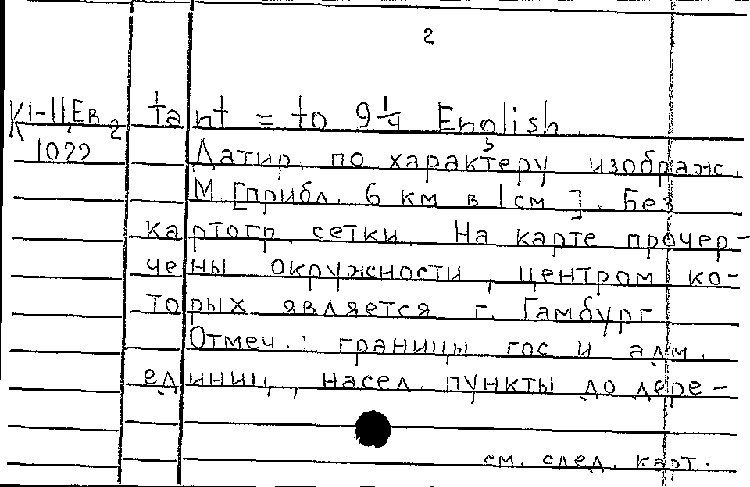 2
К 1-11Ев 2 tant = to 9 1/4 English
1022 Датир. по характеру изображ.
М [прибл. 6 км в 1 см]. Без
картогр. сетки. На карте прочер-
чены окружности, центром ко-
торых является г. Гамбург
Отмеч.: границы гос и адм.
единиц, насел. пункты до дере-
см. след. карт.